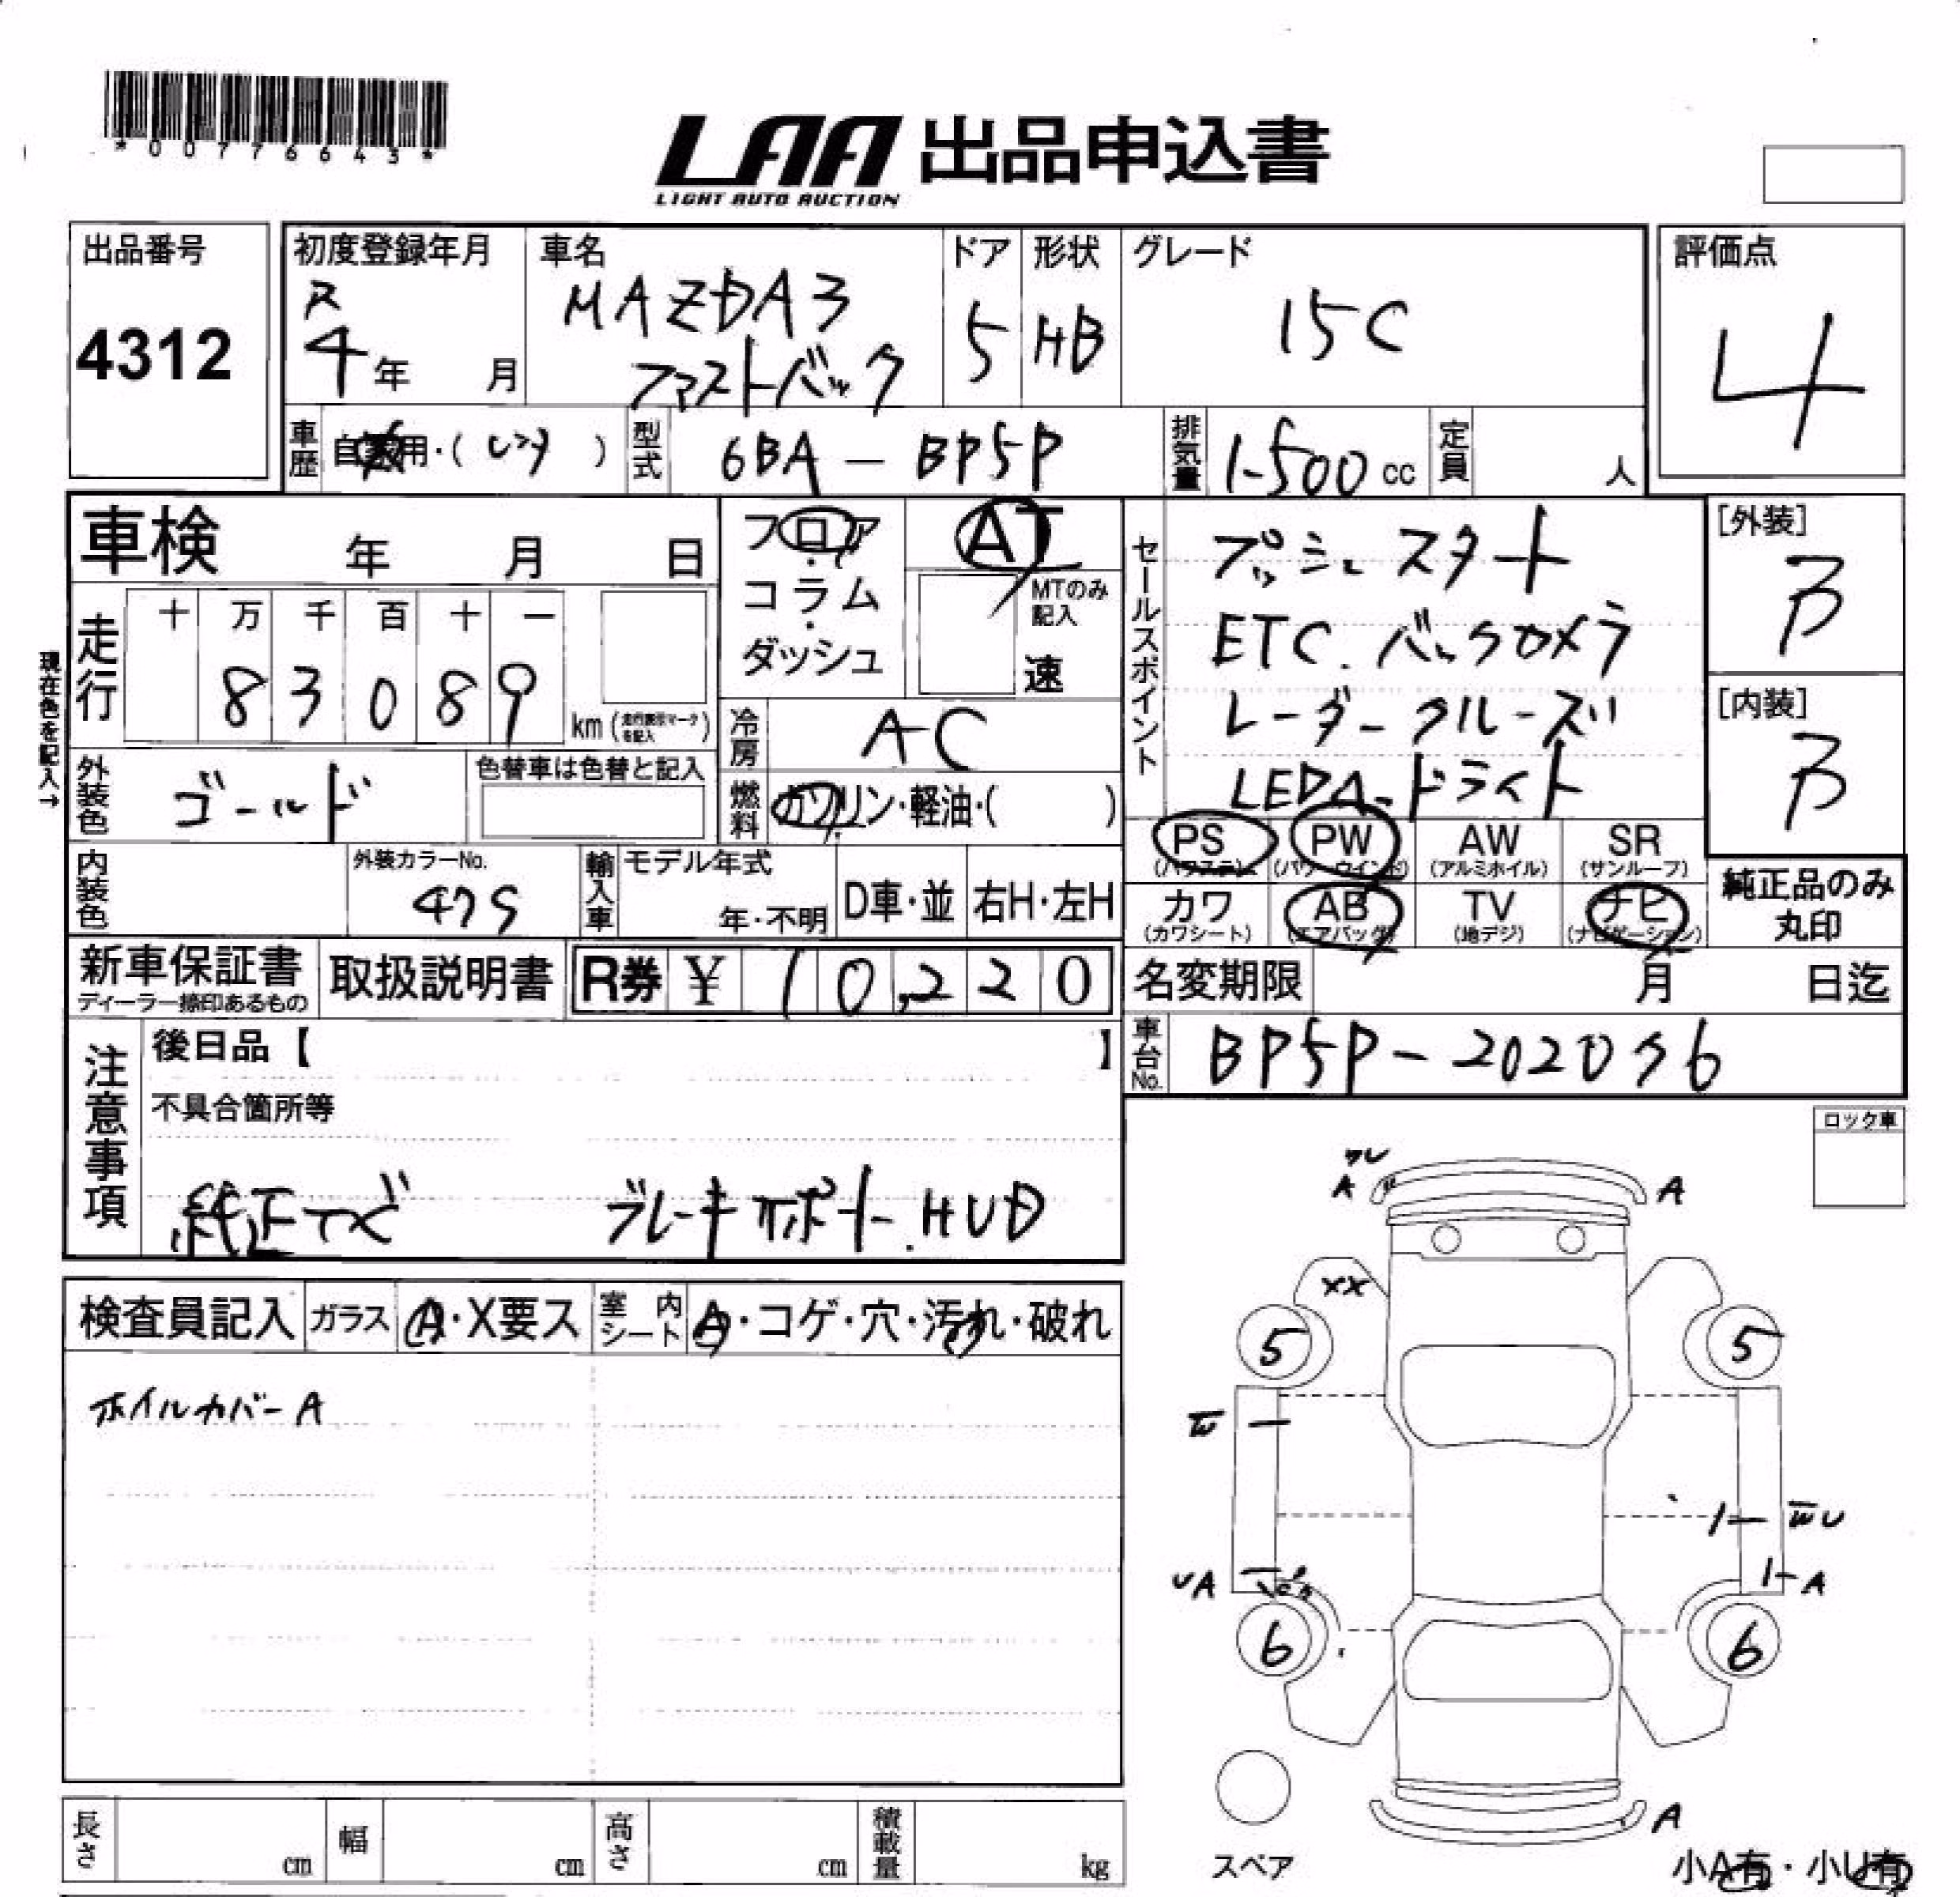 *00776643*
LAA 出品申込書
LIGHT AUTO AUCTION
出品番号
4312
初度登録年月
R
4年 月
車名
MAZDA3
ファストバック
ドア
5
形状
HB
グレード
15C
評価点
4
車歴
自家用・(レンタ)
型式
6BA-BP5P
排気量
1500cc
定員
人
車検 年 月 日
フロア・コラム・ダッシュ
AT
MTのみ記入
速
セールスポイント
プッシュスタート
ETC.バックカメラ
レーダークルーズ
LEDヘッドライト
[外装]
B
[内装]
B
現在色を記入→
走行
十 万 千 百 十 一
8 3 0 8 9
km(走行表示マークを記入)
冷房
AC
外装色
ゴールド
色替車は色替と記入
燃料
ガソリン・軽油・( )
PS
(パワステ)
PW
(パワーウインド)
AW
(アルミホイル)
SR
(サンルーフ)
カワ
(カワシート)
AB
(エアバッグ)
TV
(地デジ)
ナビ
(ナビゲーション)
純正品のみ
丸印
内装色
外装カラーNo.
47S
輸入車
モデル年式
年・不明
D車・並
右H・左H
新車保証書
ディーラー捺印あるもの
取扱説明書
R券 ¥ 10,220
名変期限 月 日迄
車台No.
BP5P-202076
注意事項
後日品【 】
不具合箇所等
純正ナビ ブレーキサポート.HUD
ロック車
検査員記入
ガラス
A・X要ス
室内シート
A・コゲ・穴・汚れ・破れ
ホイルカバーA
ワレ
A
A
XX
5
5
W
WU
UA
A
6
6
A
スペア
小A有・小U有
長さ cm
幅 cm
高さ cm
積載量 kg